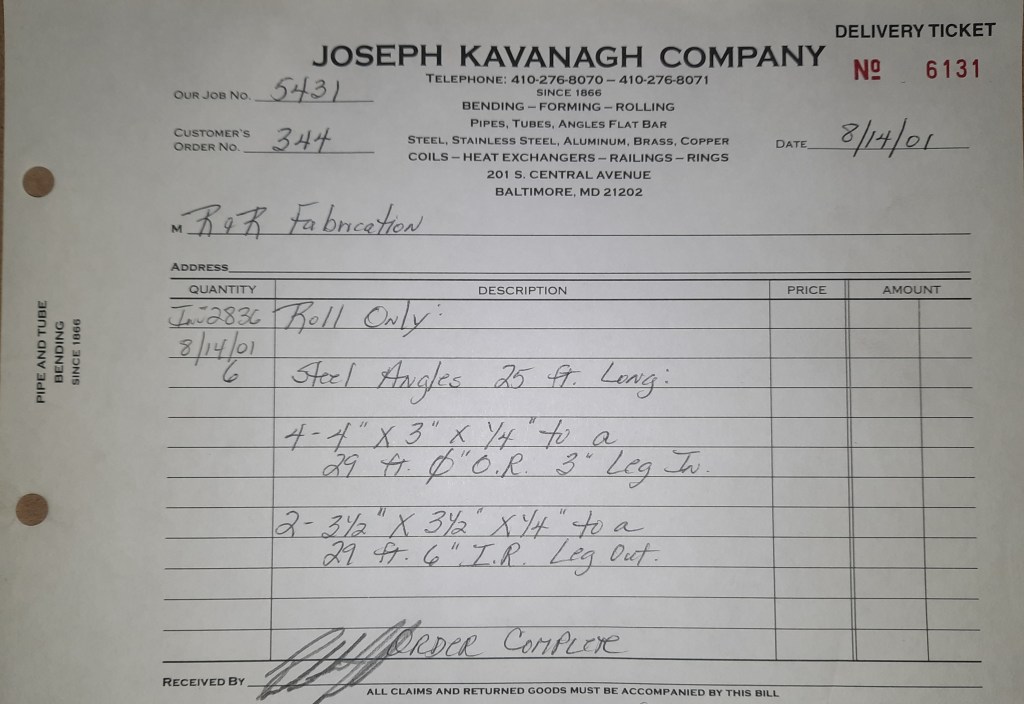 DELIVERY TICKET
JOSEPH KAVANAGH COMPANY
Nº 6131
TELEPHONE: 410-276-8070 – 410-276-8071
SINCE 1866
OUR JOB NO. 5431
BENDING – FORMING – ROLLING
PIPES, TUBES, ANGLES FLAT BAR
CUSTOMER'S ORDER NO. 344
STEEL, STAINLESS STEEL, ALUMINUM, BRASS, COPPER
DATE 8/14/01
COILS – HEAT EXCHANGERS – RAILINGS – RINGS
201 S. CENTRAL AVENUE
BALTIMORE, MD 21202
M R & R Fabrication
ADDRESS
QUANTITY DESCRIPTION PRICE AMOUNT
Inv 2836 Roll Only:
8/14/01
6 Steel Angles 25 ft. Long:
4 - 4" X 3" X 1/4" to a
29 ft. 0" O.R. 3" Leg In.
2 - 3 1/2" X 3 1/2" X 1/4" to a
29 ft. 6" I.R. Leg Out.
ORDER COMPLETE
RECEIVED BY
ALL CLAIMS AND RETURNED GOODS MUST BE ACCOMPANIED BY THIS BILL
PIPE AND TUBE
BENDING
SINCE 1866